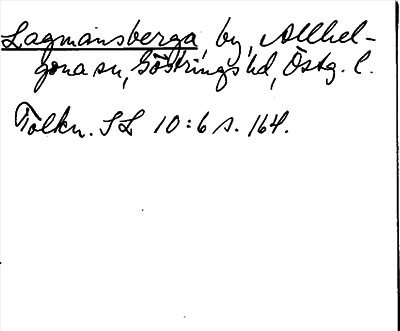 Lagmansberga, by, Allhel-
gona sn, Göstrings hd, Östg. l.
Tolkn. SL 10:6 s. 164.